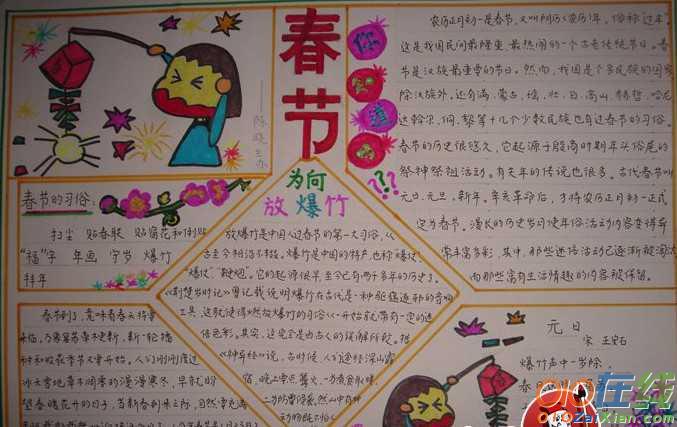 春节
陈晓兰办
你
知
道
???
农历正月初一是春节,又叫阴历(农历)年,俗称过年。
这是我国民间最隆重、最热闹的一个古老传统节日。春
节是汉族最重要的节日。然而,我国是个多民族的国家
除汉族外,还有满、蒙古、瑶、壮、白、高山、赫哲、哈尼
达斡尔、侗、黎等十几个少数民族也有过春节的习俗。
春节的历史很悠久,它起源于殷商时期年头岁尾的
祭神祭祖活动。有关年的传说也很多。古代春节叫
元日、元旦、新年。辛亥革命后,才将农历正月初一正式
定为春节。漫长的历史岁月使年俗活动内容变得异
常丰富多彩,其中,那些迷信活动已逐渐被淘汰
而那些富有生活情趣的内容被保留。
春节的习俗:
扫尘 贴春联 贴窗花和倒贴
“福”字 年画 守岁 爆竹
拜年
为何
放爆竹
放爆竹是中国人过春节的第一大习俗,从
古至今相沿不移。爆竹是中国的特产,也称“爆仗”、
“炮仗”、“鞭炮”。它的起源很早,至今已有两千多年的历史了。
《荆楚岁时记》曾记载说明爆竹在古代是一种驱瘟逐邪的音响
工具,这就使得燃放爆竹的习俗从一开始就带有一定的迷
信色彩。其实,这完全是由古人的误解所致。据
《神异经》说,古时候,人们途经深山露
宿,晚上要点篝火,一为煮食取暖,
二为防曹侵袭。然山中有种
动物既不怕人
春节到了,意味着春天将要
来临,万象复苏草木更新,新一轮播
种和收获季节又要开始。人们刚刚度过
冰天雪地草木凋零的漫漫寒冬,早就盼
望春暖花开的日子,当新春到来之际,自然要充满
元日
宋 王安石
爆竹声中一岁除,
春
OO在线
OoZaiXian.Com